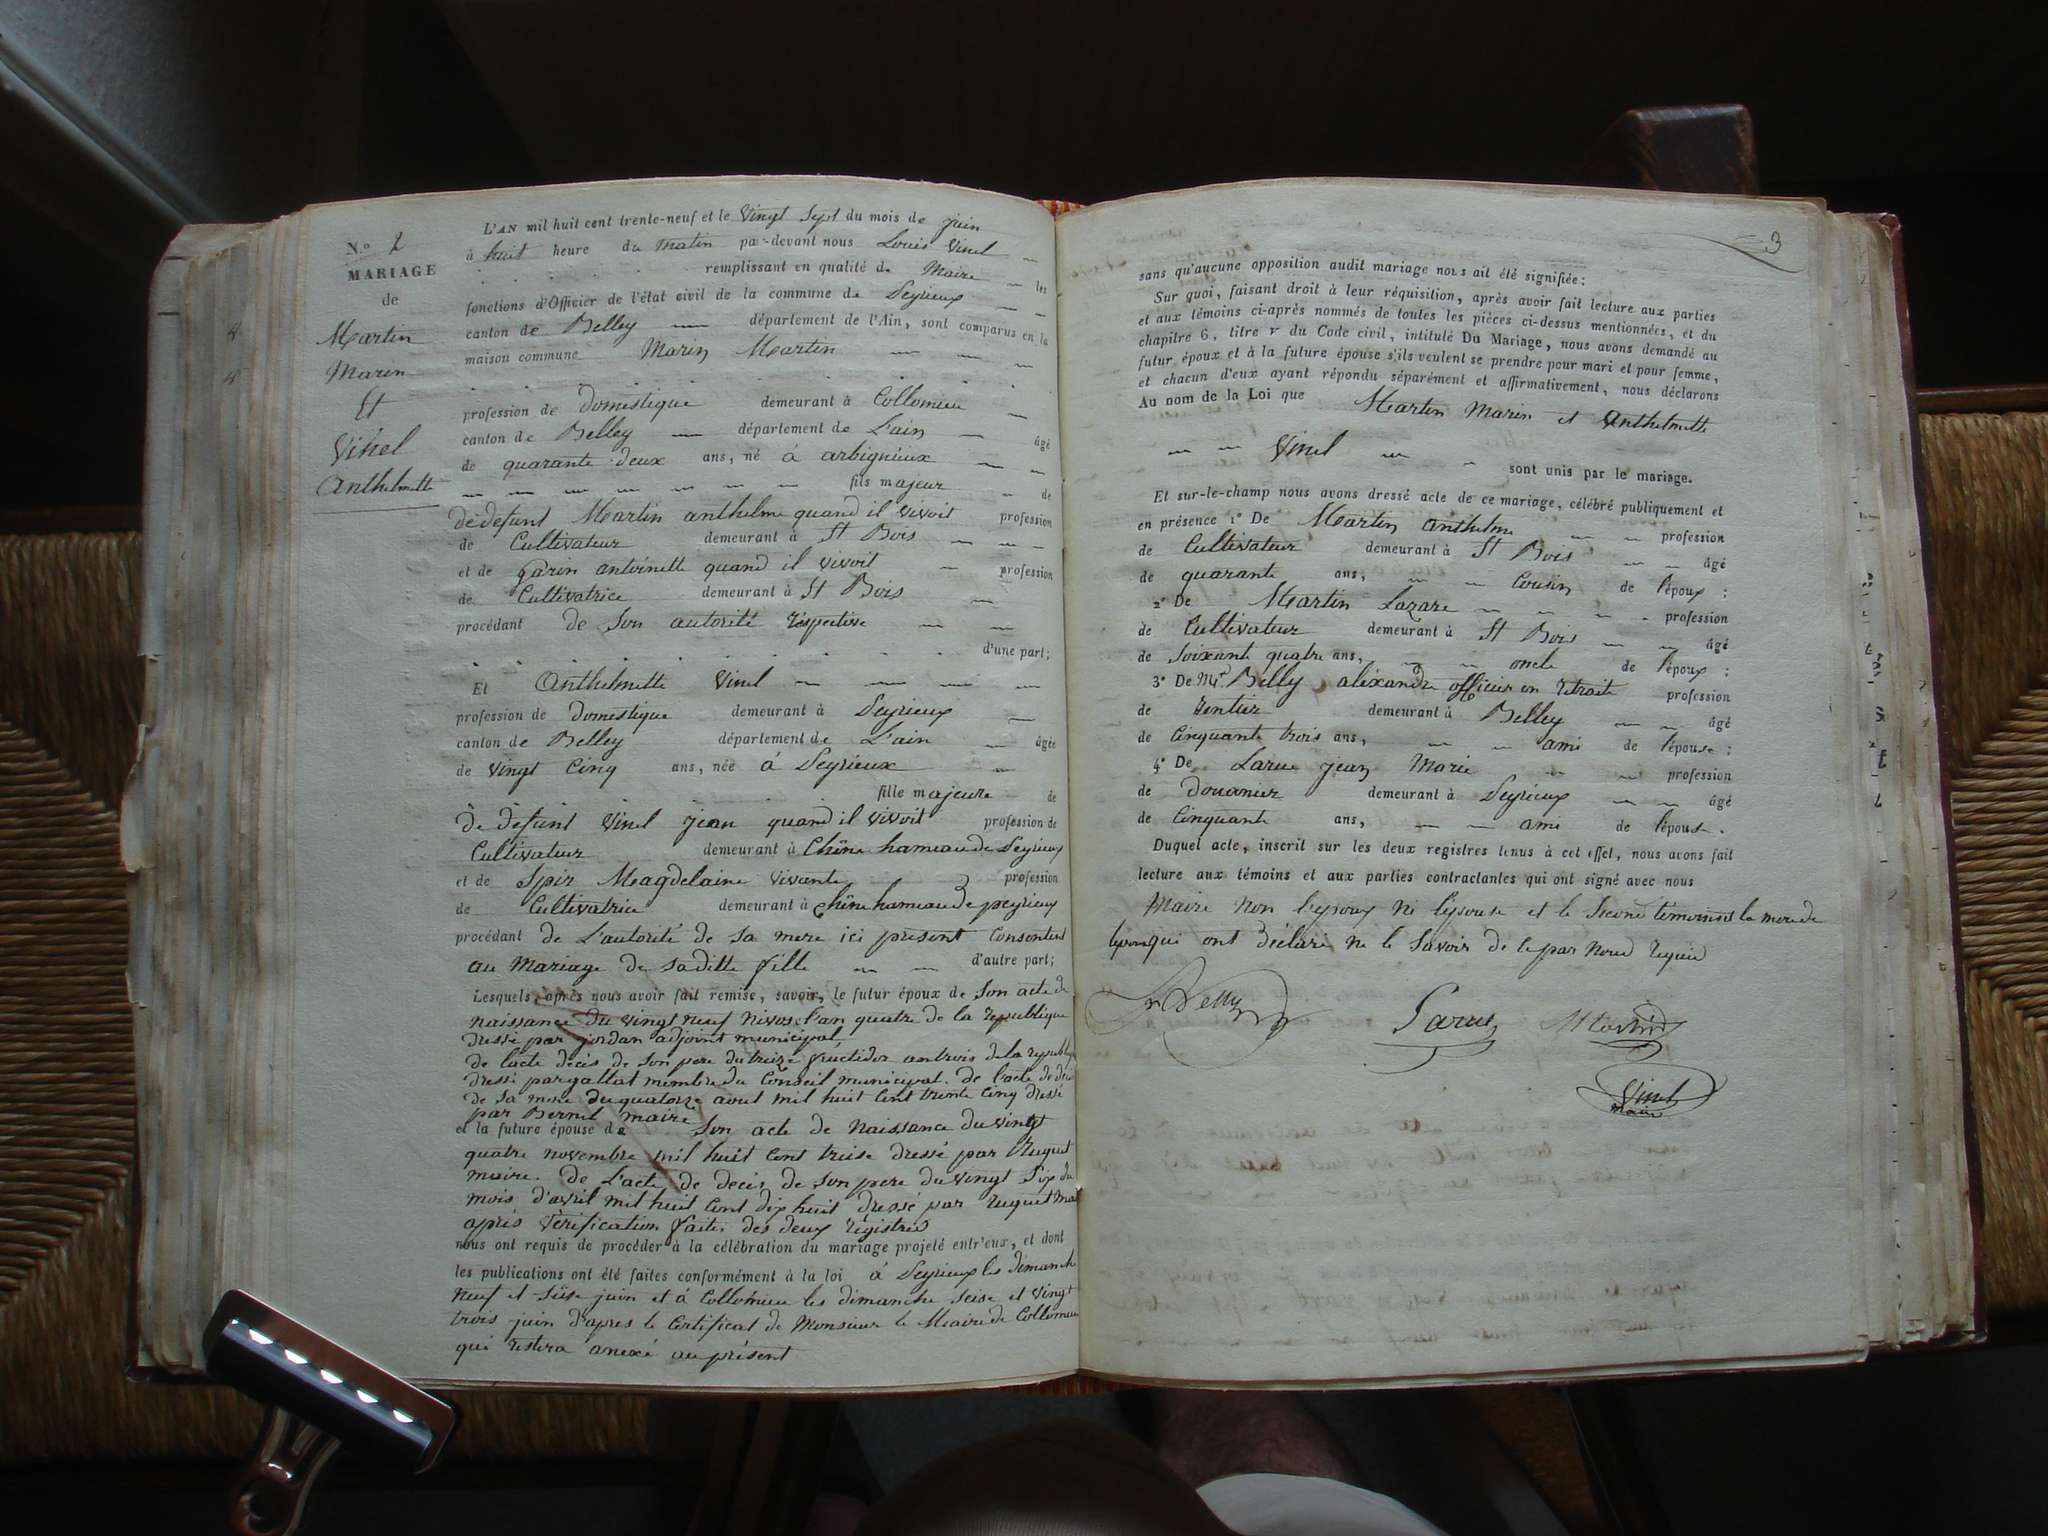 N.o 2
MARIAGE
de
Martin
Marin
Et
Vinel
Anthelmette
L'AN mil huit cent trente-neuf et le Vingt Sept du mois de juin
à huit heure du matin par-devant nous Louis Vinel
remplissant en qualité de Maire les
fonctions d'Officier de l'état civil de la commune de Peyrieux
canton de Belley département de l'Ain, sont comparus en la
maison commune Marin Martin
profession de domestique demeurant à Collomieu
canton de Belley département de L'ain âgé
de quarante deux ans, né à arbignieux
fils majeur de
de defunt Martin anthelme quand il vivoit profession
de Cultivateur demeurant à St Bois
et de garin antoinette quand il vivoit profession
de Cultivatrice demeurant à St Bois
procédant de Son autorité respective
d'une part;
Et Anthelmette Vinel
profession de Domestique demeurant à Peyrieux
canton de Belley département de L'ain âgée
de vingt Cinq ans, née à Peyrieux
fille majeure de
de defunt Vinel jean quand il vivoit profession de
Cultivateur demeurant à Chêne hameau de Peyrieux
et de Spir Magdelaine vivante profession
de Cultivatrice demeurant à chêne hameau de peyrieux
procédant de L'autorité de sa mere ici présent Consentent
au mariage de saditte fille d'autre part;
Lesquels, après nous avoir fait remise, savoir, le futur époux de Son acte de
naissance du vingt neuf nivose l'an quatre de la republique
dressé par jordan adjoint municipal
de lacte décés de Son pere du treize fructidor an trois de la republiq
dressé par gallat membre du Conseil municipal. de l'acte de décé
de sa mere du quatorze aout mil huit Cent trente Cinq dressé
par Bernel maire
et la future épouse de Son acte de naissance du vingt
quatre novembre mil huit Cent treise dressé par Ruguet
maire. de L'acte de décès de Son pere du vingt Six du
mois d'avril mil huit Cent dix huit dressé par ruguet mai
après Verification faite des deux régistres
nous ont requis de procéder à la célébration du mariage projeté entr'eux, et dont
les publications ont été faites conformément à la loi à Peyrieux les dimanche
neuf et Seise juin et à Collomieu les dimanche seise et vingt
trois juin d'apres le Certificat de Monsieur le Maire de Collomieu
qui restera anexé au présent
3
sans qu'aucune opposition audit mariage nous ait été signifiée:
Sur quoi, faisant droit à leur réquisition, après avoir fait lecture aux parties
et aux témoins ci-après nommés de toutes les pièces ci-dessus mentionnées, et du
chapitre 6, titre v du Code civil, intitulé Du Mariage, nous avons demandé au
futur époux et à la future épouse s'ils veulent se prendre pour mari et pour femme,
et chacun d'eux ayant répondu séparément et affirmativement, nous déclarons
Au nom de la Loi que Martin Marin et Anthelmette
Vinel sont unis par le mariage.
Et sur-le-champ nous avons dressé acte de ce mariage, célébré publiquement et
en présence 1° De Martin anthelme profession
de Cultivateur demeurant à St Bois âgé
de quarante ans, Cousin de l'époux;
2° De Martin Lazare profession
de Cultivateur demeurant à St Bois âgé
de Soixante quatre ans, oncle de l'époux;
3° De Mr Belly aléxandre officier en retraite profession
de rentier demeurant à Belley âgé
de Cinquante trois ans, ami de l'épouse;
4° De Larue jean Marie profession
de douanier demeurant à Peyrieux âgé
de Cinquante ans, ami de l'épouse.
Duquel acte, inscrit sur les deux registres tenus à cet effet, nous avons fait
lecture aux témoins et aux parties contractantes qui ont signé avec nous
Maire non l'epoux ni l'epouse et le Second temoins et la mere de
qui ont déclaré ne le savoir de ce par nous requis
Larue
Vinel
maire